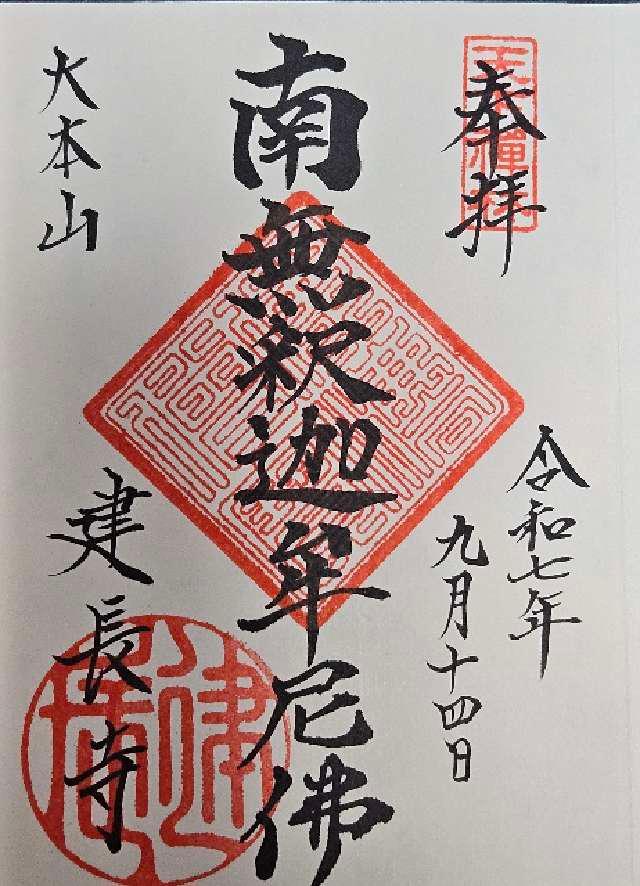 奉拝
令和七年
九月十四日
南無釈迦牟尼佛
大本山
建長寺